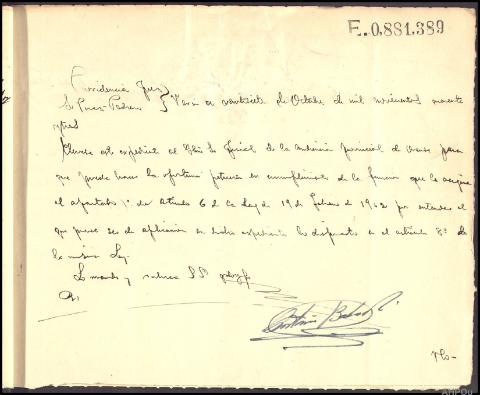 E.0,881,389
Providencia Juez
Sr. Perez Padron } Verin a veintisiete de Octubre de mil novecientos cuarenta
y tres
Elevese este expediente al Fiscal de la Audiencia provincial de Orense para
que pueda hacer la oportuna peticion en cumplimiento de la que le asigna
el apartado 1º del articulo 6 de la Ley de 19 de Febrero de 1942 por entender el
que provee es de aplicacion en dicho expediente lo dispuesto en el articulo 8º de
la misma Ley
Lo mando y rubrica SSª doy fe
AHPOu